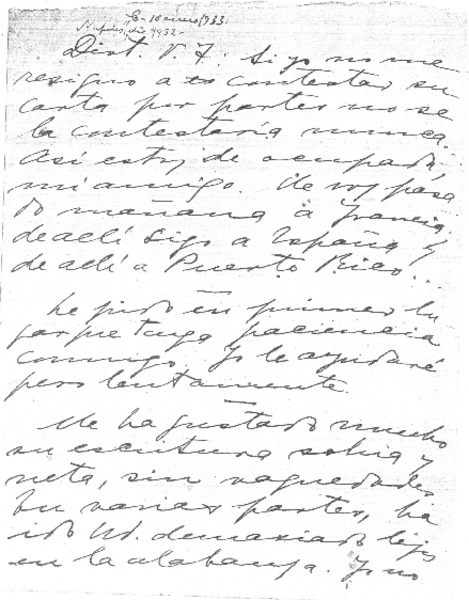 10 enero/933.
Nápoles, dic 1932-
Dist. V. F. Si yo no me
resigno a contestar su
carta por partes no se
la contestaría nunca.
Así estoy de ocupada
mi amigo. Me voy pasa
do mañana a Francia, y
de allí sigo a España y
de allí a Puerto Rico..
Le pido en primer lu
gar que tenga paciencia
conmigo. Yo le ayudaré
pero lentamente.
Me ha gustado mucho
su escritura sobria y
neta, sin vaguedades.
En varias partes, ha
ido Ud. demasiado lejos
en la alabanza. Yo no